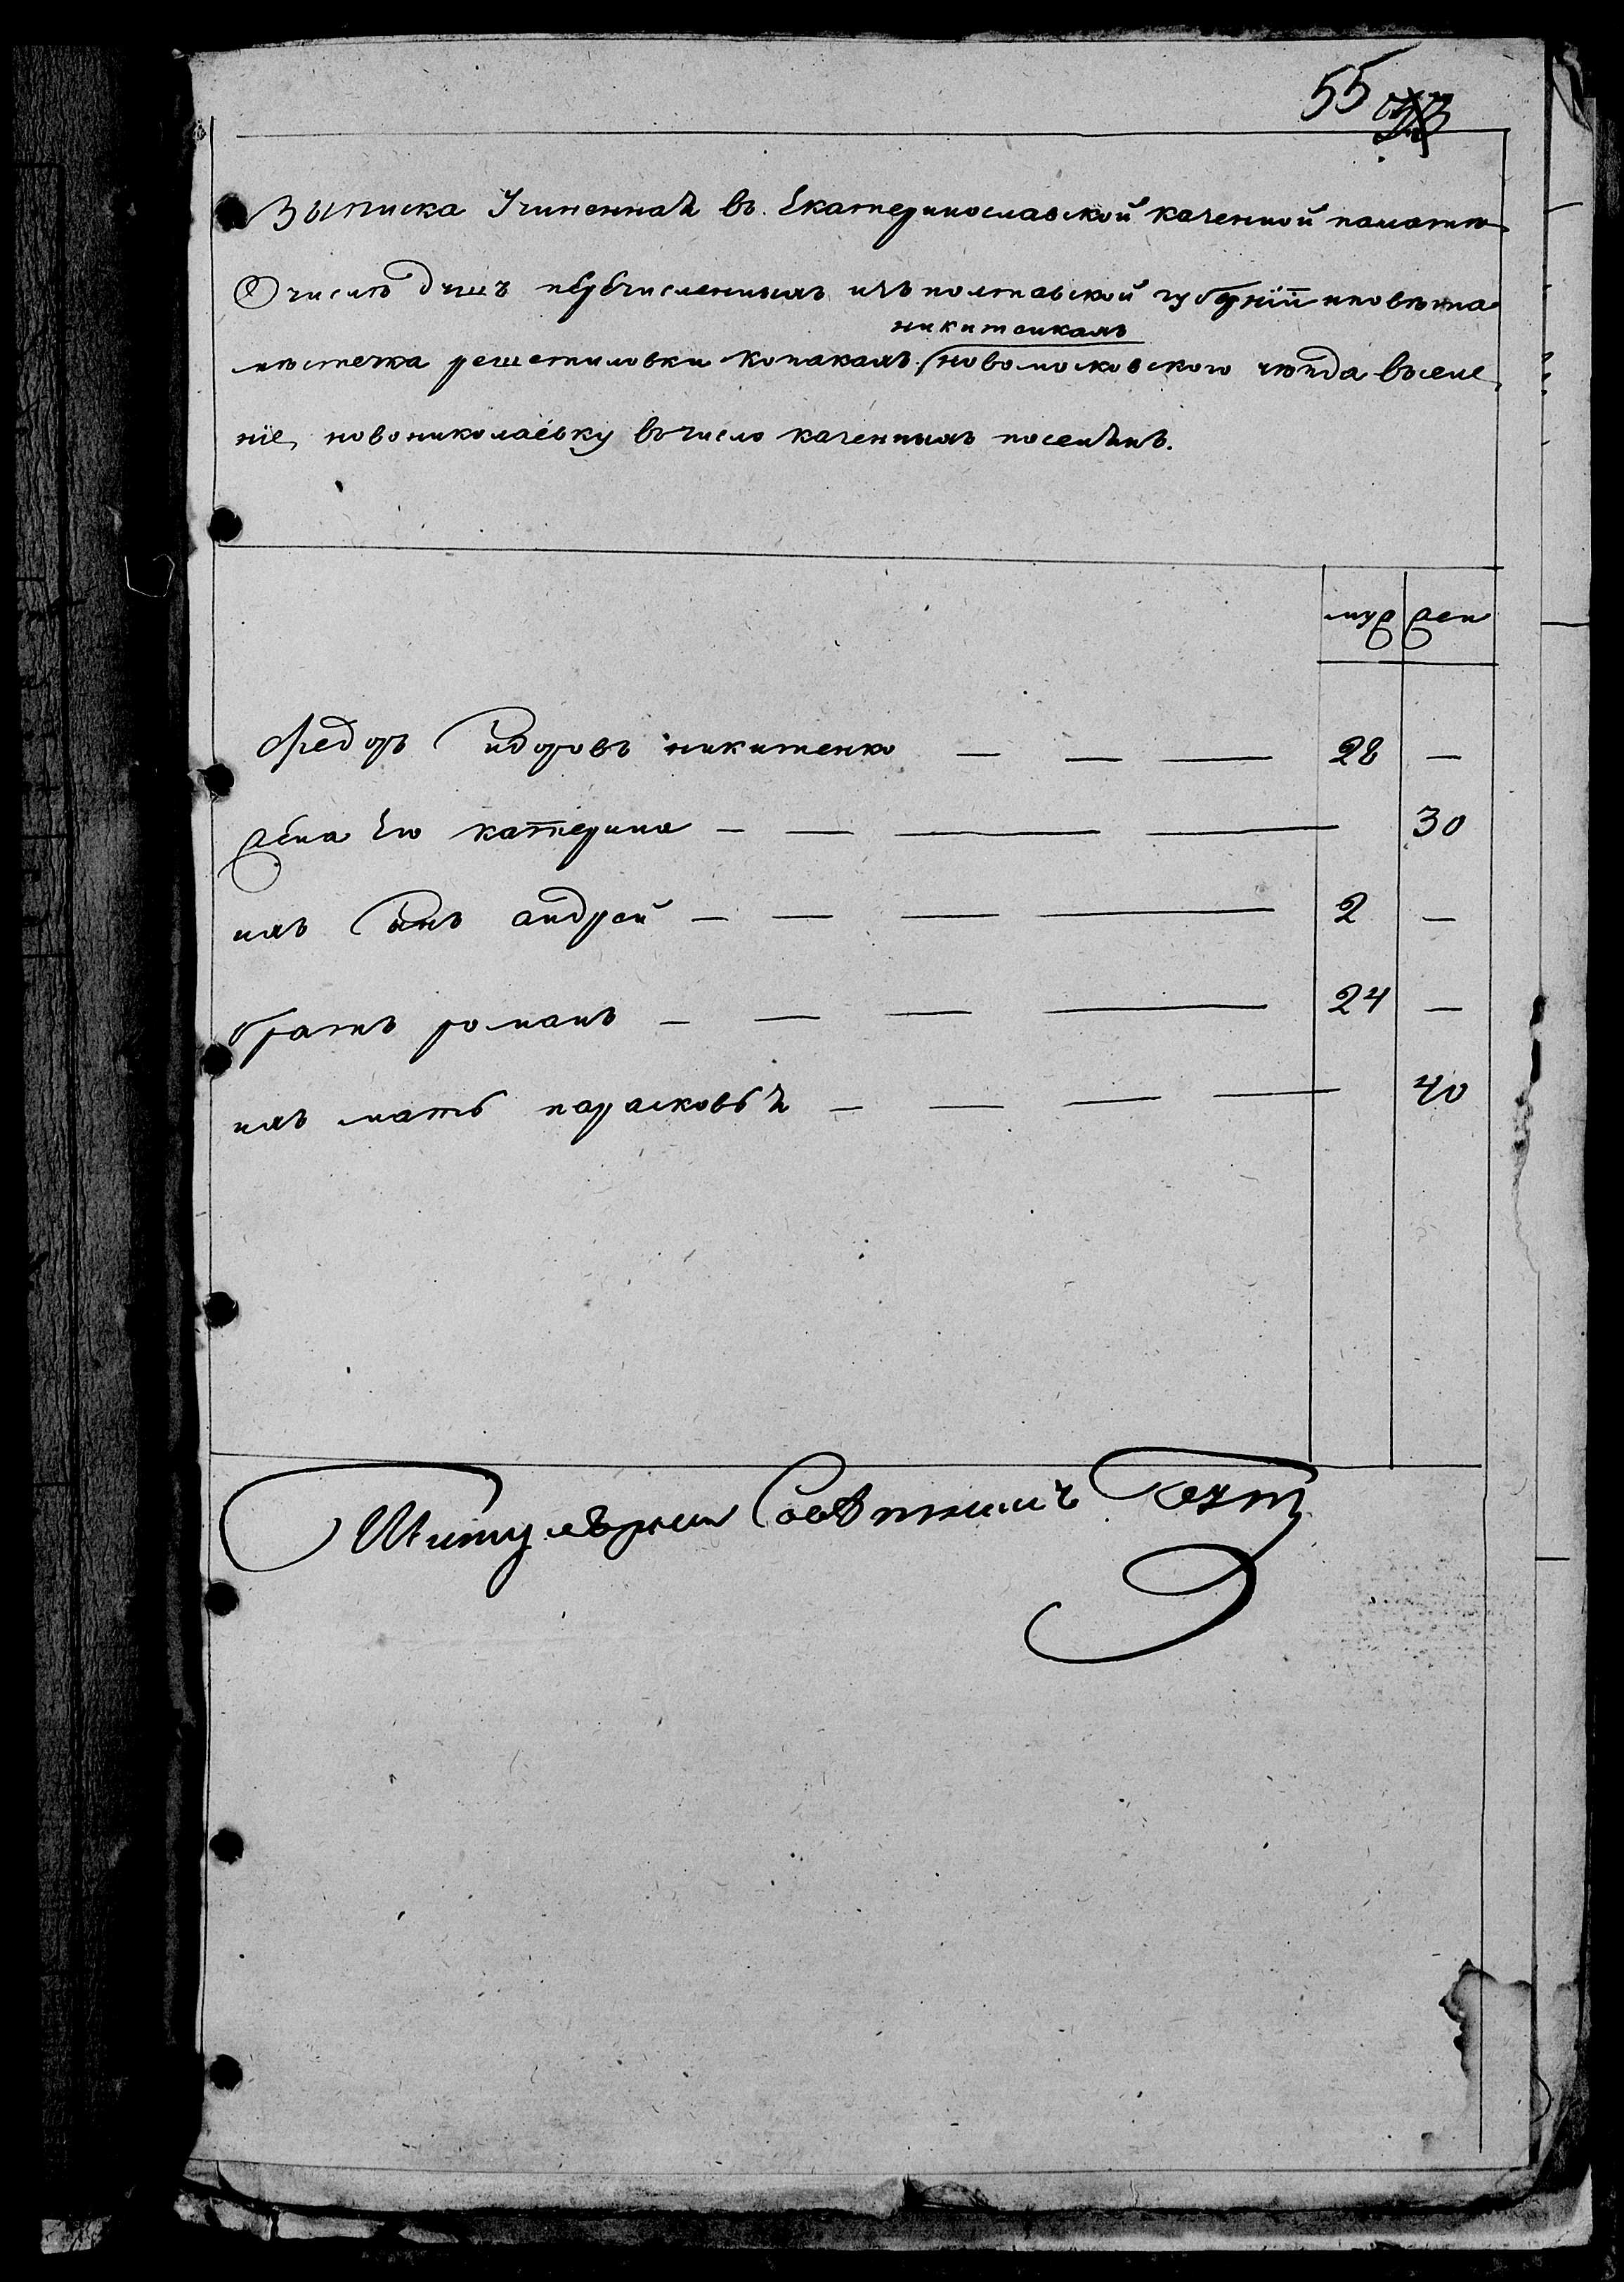 55
Выписка Учиненная въ Екатеринославской казенной палатѣ
О числѣ душъ перечисленныхъ изъ полтавской губернїи и повѣта
никитенкахъ
мѣстечка решетиловки козакахъ новомосковского уѣзда въ селе
нїе, новониколаевку въ число казенныхъ поселянъ.
муж жен
Федоръ Сидоровъ никитенко — — — 28 —
жена Его катерина — — — — 30
ихъ Сынъ андрей — — — — 2 —
братъ романъ — — — — 24 —
ихъ мать парасковья — — — — 40
Титулярный Совѣтникъ